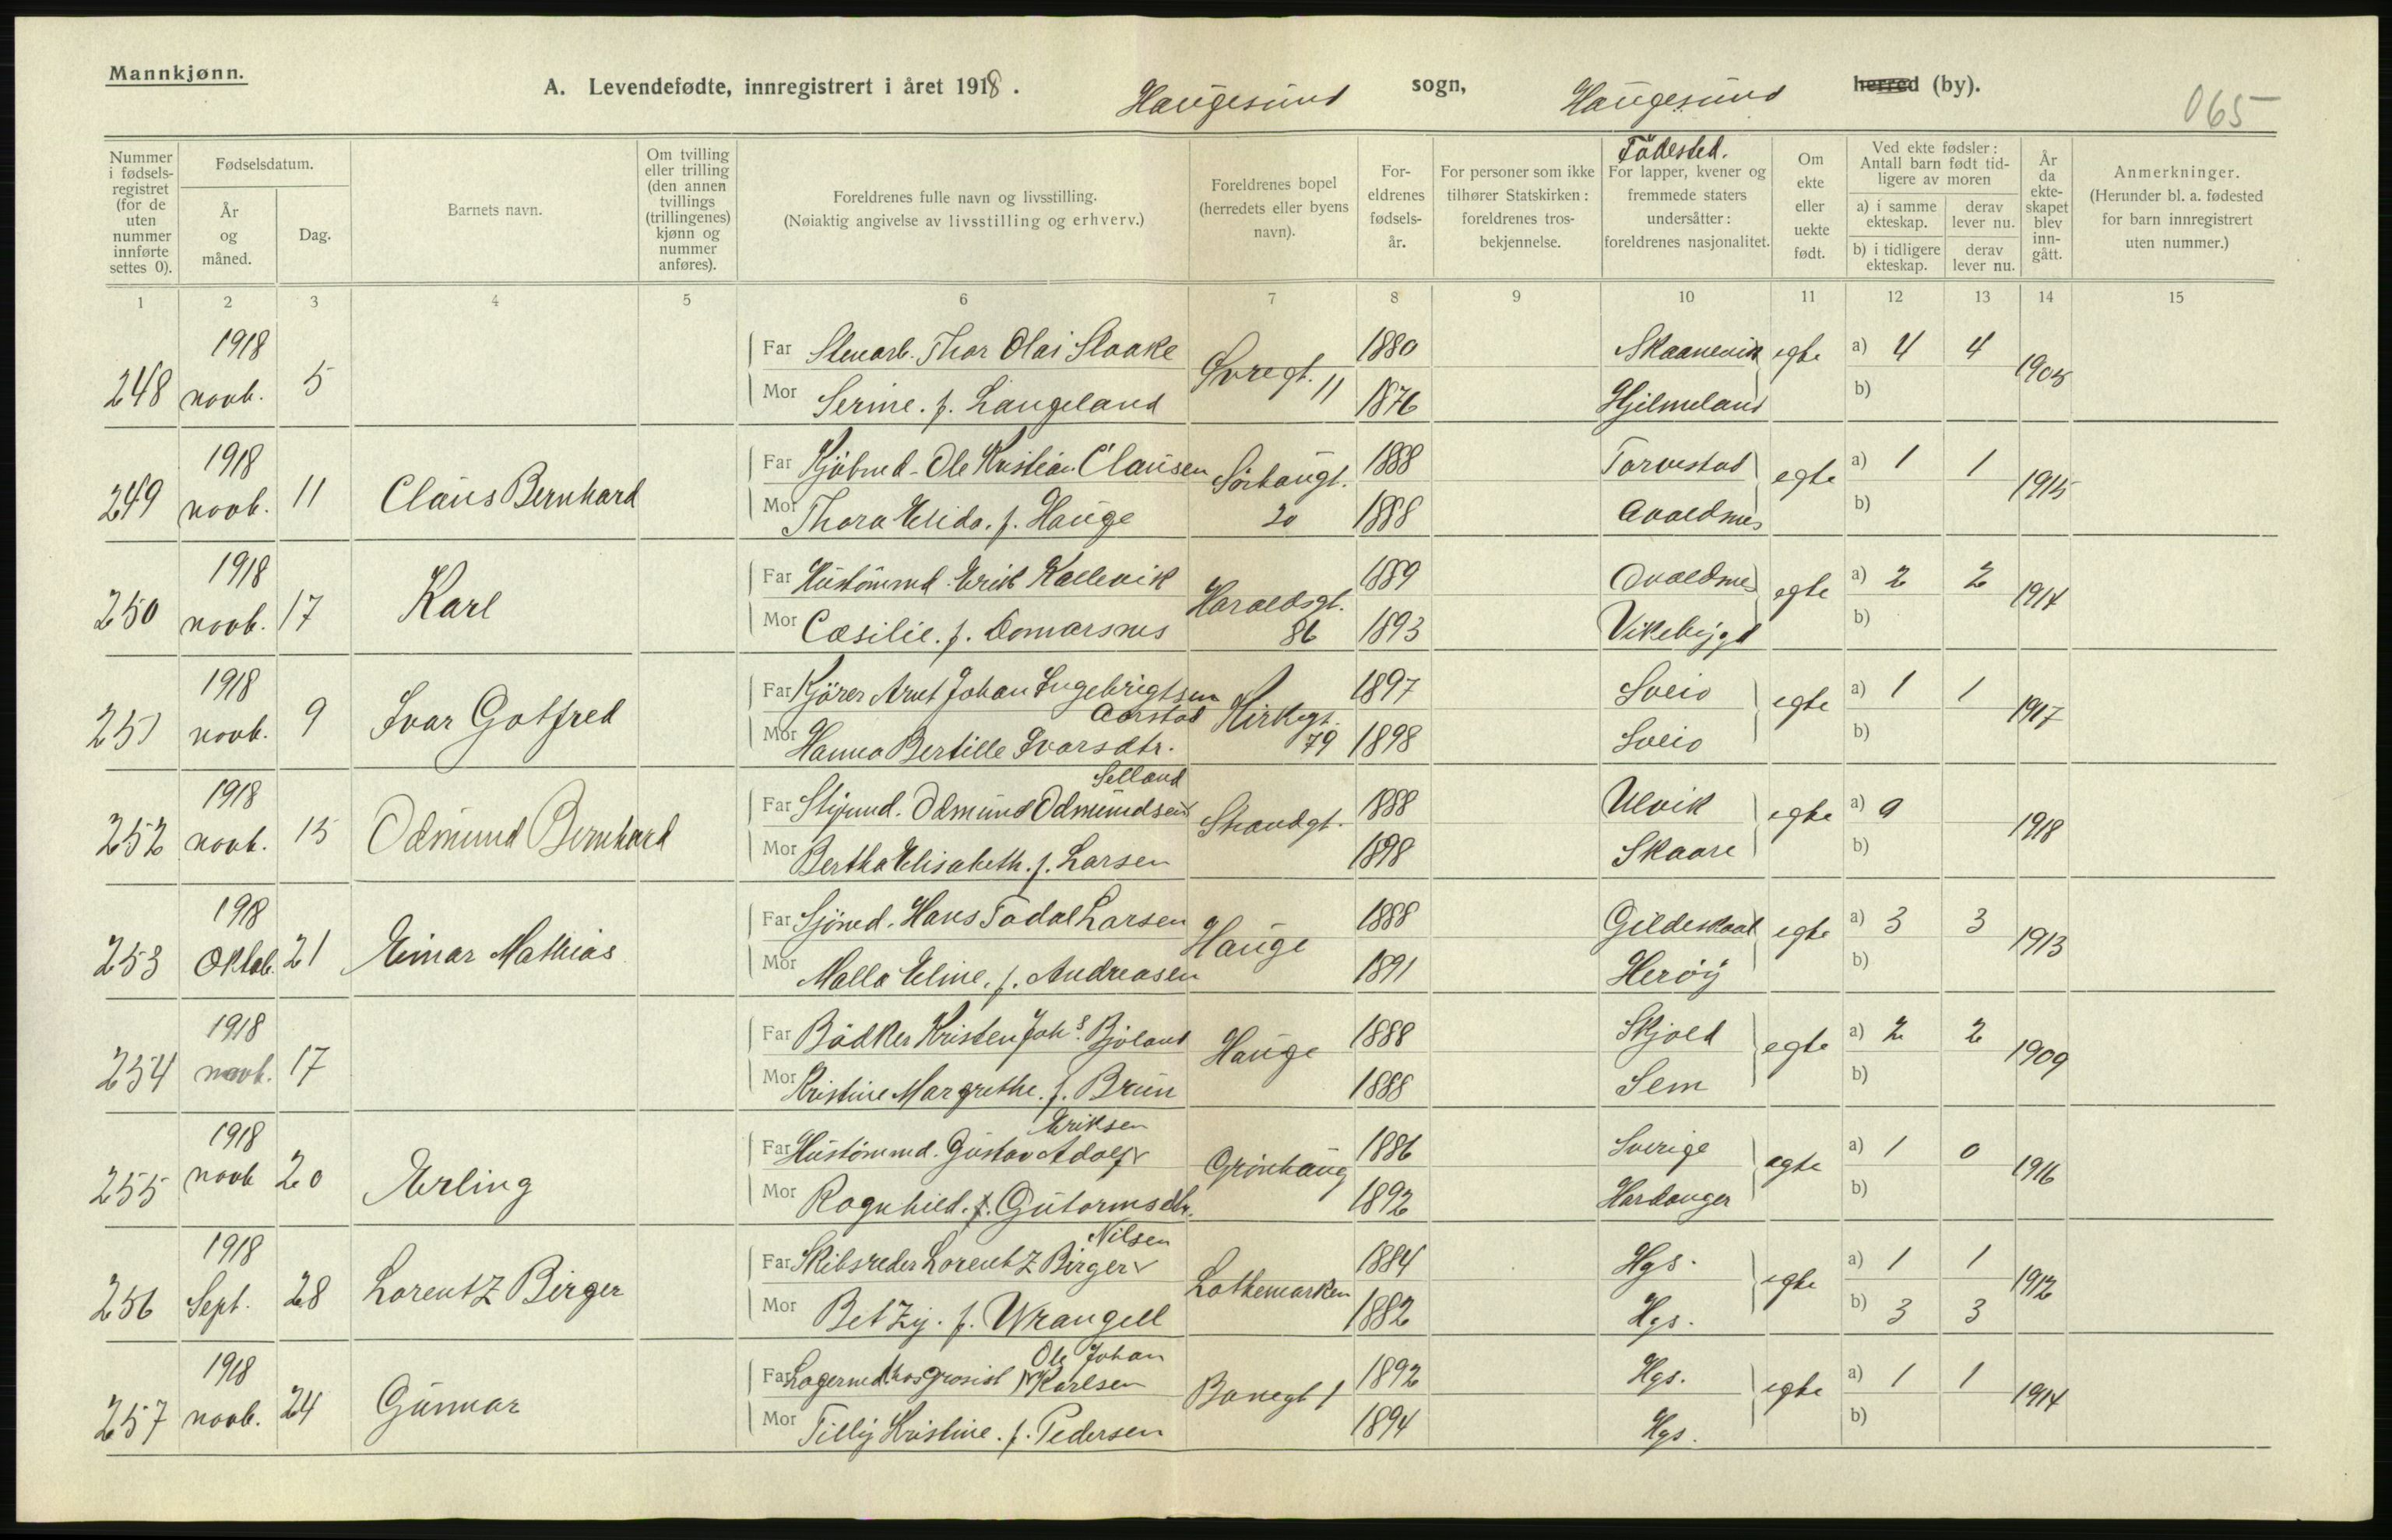 Mannkjønn.
A. Levendefødte, innregistrert i året 1918. Haugesund sogn, Haugesund herred (by).
065
Nummer i fødsels-registret (for de uten nummer innførte settes 0).
Fødselsdatum.
År og måned.
Dag.
Barnets navn.
Om tvilling eller trilling (den annen tvillings (trillingenes) kjønn og nummer anføres).
Foreldrenes fulle navn og livsstilling.
(Nøiaktig angivelse av livsstilling og erhverv.)
Foreldrenes bopel (herredets eller byens navn).
For-eldrenes fødsels-år.
For personer som ikke tilhører Statskirken: foreldrenes tros-bekjennelse.
Födested.
For lapper, kvener og fremmede staters undersåtter: foreldrenes nasjonalitet.
Om ekte eller uekte født.
Ved ekte fødsler: Antall barn født tid-ligere av moren
a) i samme ekteskap.
derav lever nu.
b) i tidligere ekteskap.
derav lever nu.
År da ekte-skapet blev inn-gått.
Anmerkninger.
(Herunder bl. a. fødested for barn innregistrert uten nummer.)
1 2 3 4 5 6 7 8 9 10 11 12 13 14 15
248 1918 novb. 5 Far Stenarb. Thor Olai Staake 11 1880 Skaanevik egte a) 4 4 1905
Mor Serine. f. Langeland 1876 Hjelmeland b)
249 1918 novb. 11 Claus Bernhard Far Kjöbmd. Ole Kristian Clausen Sörhaugt. 20 1888 Torvestad egte a) 1 1 1915
Mor Thora Elida. f. Hauge 1888 Avaldsnes b)
250 1918 novb. 17 Karl Far Hustömmd. Erik Kallevik Haraldsgt. 86 1889 Avaldsnes egte a) 2 2 1914
Mor Cæsilie. f. Omarsnes 1893 Vikebygd b)
251 1918 novb. 9 Ivar Gotfred Far Kjörer Arnt Johan Ingebrigtsen Aarstad Kirkegt. 79 1897 Sveio egte a) 1 1 1917
Mor Hanna Bertille Ivarsdtr. 1898 Sveio b)
252 1918 novb. 15 Odmund Bernhard Far Odmund Odmundsen Selland Strandgt. 1888 Ulvik egte a) 0 1918
Mor Bertha Elisabeth. f. Larsen 1898 Skaare b)
253 1918 Oktob. 21 Einar Mathias Far Sjömd. Hans Todal Larsen Hauge 1888 Gildeskaal egte a) 3 3 1913
Mor Malla Eline. f. Andreasen 1891 Heröy b)
254 1918 novb. 17 Far Bödker Kristen Johs. Bjoland Hauge 1888 Skjold egte a) 2 2 1909
Mor Kristine Margrethe. f. Brun 1888 Sem b)
255 1918 novb 20 Erling Far Hustömmd. Gustav Adolf Eriksen Grönhaug 1886 Sverige egte a) 1 0 1916
Mor Ragnhild. f. Gutormsdtr. 1892 Hardanger b)
256 1918 Sept. 28 Lorentz Birger Far Skibsreder Lorentz Birger Nilsen Lothemarken 1884 Hgs. egte a) 1 1 1912
Mor Betzy. f. Wrangell 1882 Hgs. b) 3 3
257 1918 novb. 24 Gunnar Far Lagermd hos Grosist Ole Johan Karlsen Banegt 1 1892 Hgs. egte a) 1 1 1914
Mor Tilly Kristine. f. Pedersen 1894 Hgs. b)